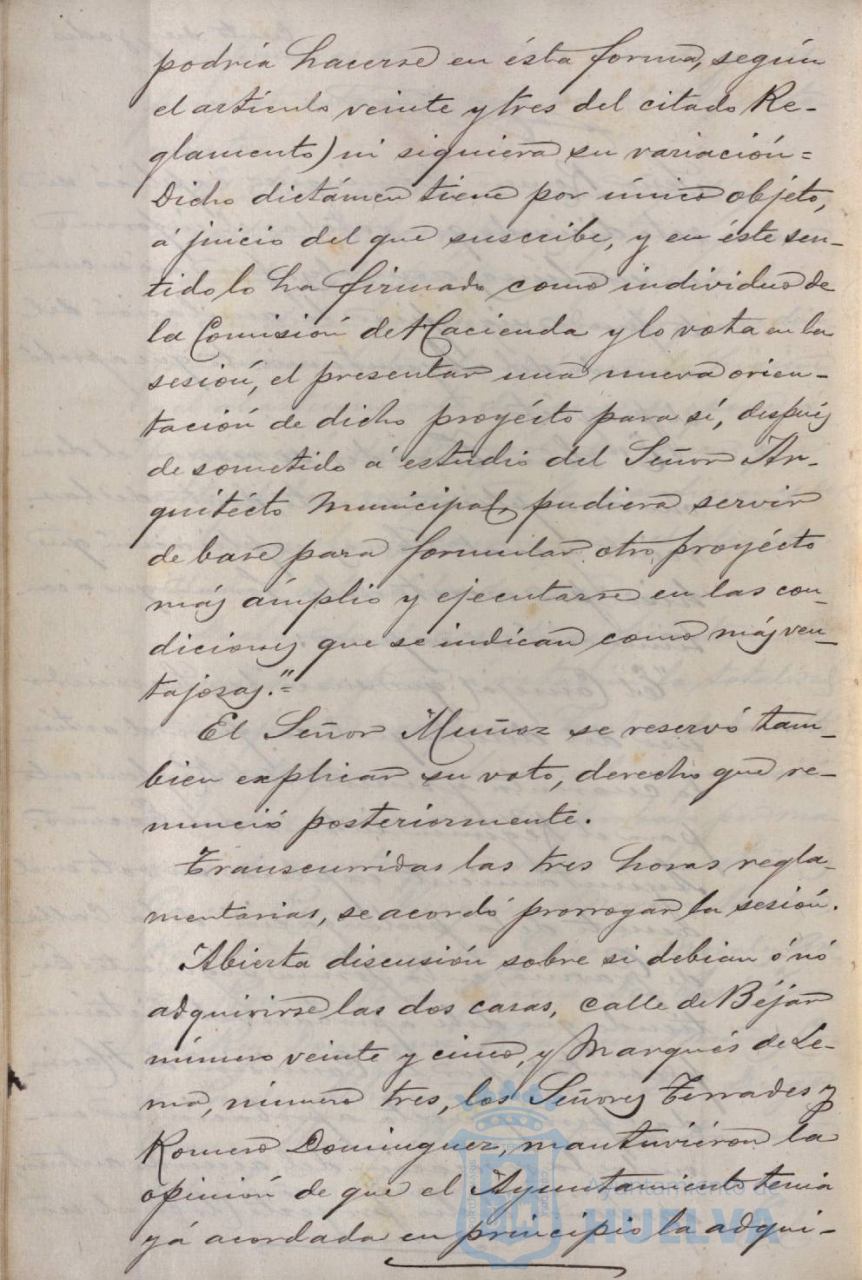 podría hacerse en ésta forma, según
el artículo veinte y tres del citado Re-
glamento) ni siquiera su variación=
Dicho dictámen tiene por único objeto,
á juicio del que suscribe, y en éste sen-
tido lo ha firmado como individuo de
la Comisión de Hacienda y lo vota en la
sesión, el presentar una nueva orien-
tación de dicho proyécto para sí, después
de sometido á estudio del Señor Ar-
quitécto Municipal, pudiera servir
de base para formular otro proyécto
más ámplio y ejecutarse en las con-
diciones que se indican como más ven-
tajosas."=
El Señor Muñoz se reservó tam-
bien explicar su voto, derecho que re-
nunció posteriormente.
Transcurridas las tres horas regla-
mentarias, se acordó prorrogar la sesión.
Abierta discusión sobre si debian ó nó
adquirirse las dos casas, calle de Béjar
número veinte y cinco, y Marqués de Le-
ma, número tres, los Señores Terrades y
Romero Dominguez, mantuviéron la
opinión de que el Ayuntamiento tenia
yá acordada en principio la adqui-
Ayuntamiento de
HUELVA